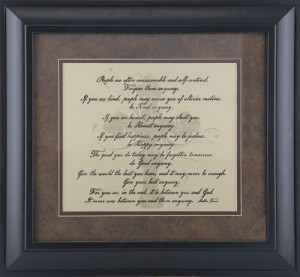 People are often unreasonable and self-centered.
Forgive them anyway.
If you are kind, people may accuse you of ulterior motives.
Be Kind anyway.
If you are honest, people may cheat you.
Be Honest anyway.
If you find happiness, people may be jealous.
Be Happy anyway.
The good you do today may be forgotten tomorrow.
Do Good anyway.
Give the world the best you have, and it may never be enough.
Give your best anyway.
For you see, in the end, it is between you and God.
It never was between you and them anyway.